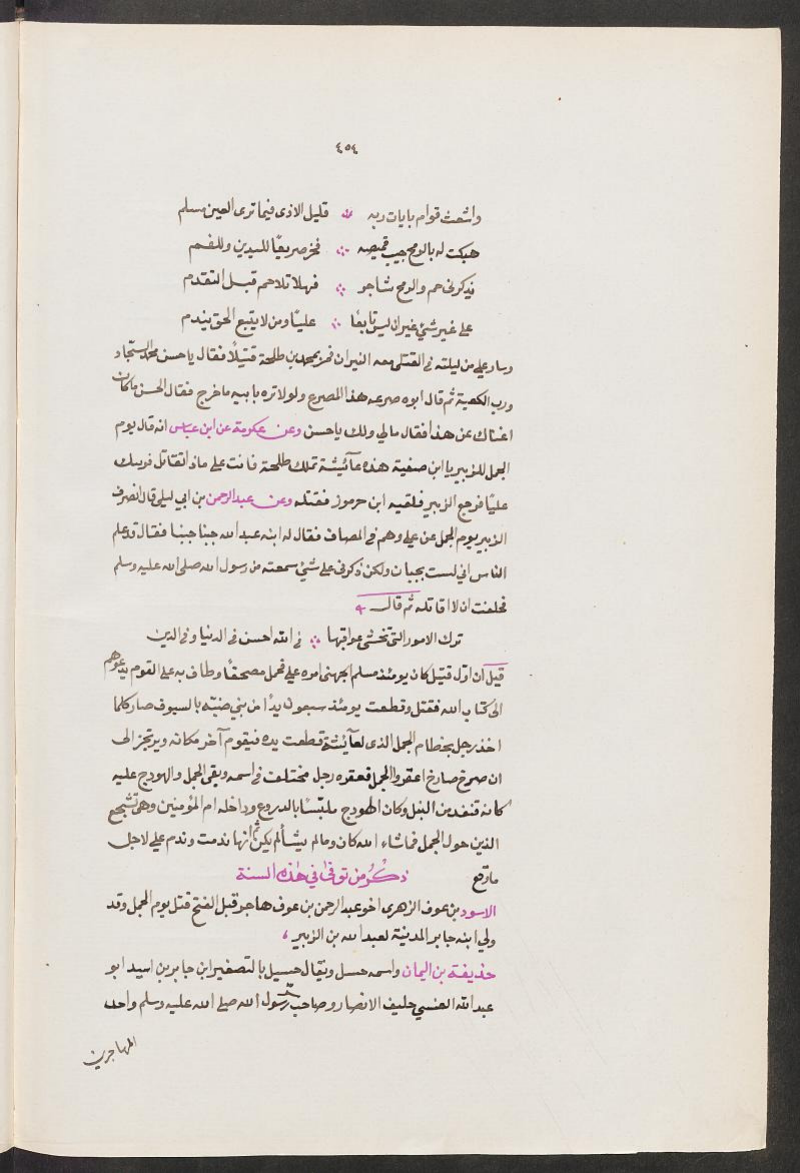 ٤٥٤
واشعث قوام بايات ربه ؞ قليل الاذى فيما ترى العين مسلم
هتكت له بالرمح جيب قميصه ؞ فخر صريعًا لليدين وللفم
يذكرنى حم والرمح شاجر ؞ فهلا تلا حم قبل التقدم
على غير شئ غير ان ليس تابعًا ؞ عليًا ومن لا يتبع الحق يندم
وسار علي من ليلته فى القتلى معه النيران فمر بمحمد بن طلحة قتيلًا فقال يا حسن محمد السجاد
ورب الكعبة ثم قال ابوه صرعه هذا المصرع ولولا تره بابيه ما خرج فقال الحسن ما كان
اغناك عن هذا فقال مالي ولك يا حسن وعن عكرمة عن ابن عباس انه قال يوم
الجمل للزبير يا ابن صفية هذه عآئيشة تملك طلحة فانت على ماذا تقاتل قريبك
عليًا فرجع الزبير فلقيه ابن جرموز فقتله وعن عبدالرحمن بن ابي ليلى قال انصرف
الزبير يوم الجمل عن علي وهم فى المصاف فقال له ابنه عبد الله جبنا جبنا فقال قد علم
الناس اني لست بجبان ولكن ذكرنى علي شئ سمعته من رسول الله صلى الله عليه وسلم
فحلفت ان لا اقاتله ثم قال
ترك الامور التى تخشى عواقبها ؞ فى الله احسن فى الدنيا وفى الدين
قيل ان اوّل قتيل كان يومئذ مسلم الجهنى امره علي فحمل مصحفًا وطاف به على القوم يدعوهم
الى كتاب الله فقتل وقطعت يومئذ سبعون يدًا من بني ضبّة بالسيوف صار كلما
اخذ رجل بخطام الجمل الذى لعآئيشة قطعت يده فيقوم آخر مكانه ويرتجز الى
ان صرخ صارخ اعقروا الجمل فعقره رجل مختلف فى اسمه وبقى الجمل والهودج عليه
كانه قنفذ من النبل وكان الهودج ملبّسًا بالدروع وداخله ام المؤمنين وهى تشجع
الذين حول الجمل فما شاء الله كان وما لم يشأ لم يكن ثم انها ندمت وندم علي لاجل
ما وقع
ذكْرُ من توفى فى هذه السنة
الاسود بن عوف الزهرى اخو عبد الرحمن بن عوف هاجر قبل الفتح قتل يوم الجمل وقد
ولي ابنه جابر المدينة لعبد الله بن الزبير ،
حذيفة بن اليمان واسمه حسل ويقال حسيل بالتصغير ابن جابر بن اسيد ابو
عبد الله العنسي حليف الانصار وصاحب سر رسول الله صلى الله عليه وسلم واحد
المهاجرين